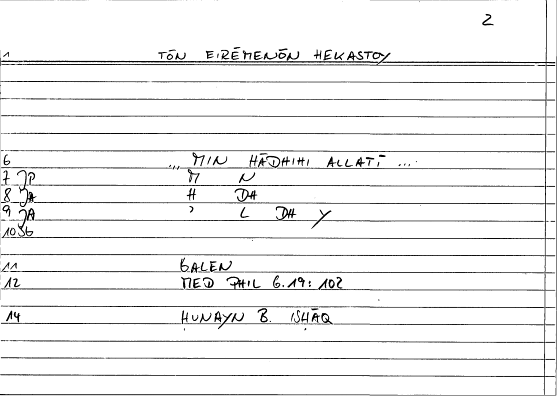 2
1 TŌN EIRĒMENŌN HEKASTOY
6 ... MIN HĀDHIHI ALLATĪ ....
7 JP M N
8 JA H DH
9 JA ' L DH Y
10 SG
11 GALEN
12 MED PHIL 6.19: 102
14 ḤUNAYN B. ISḤĀQ